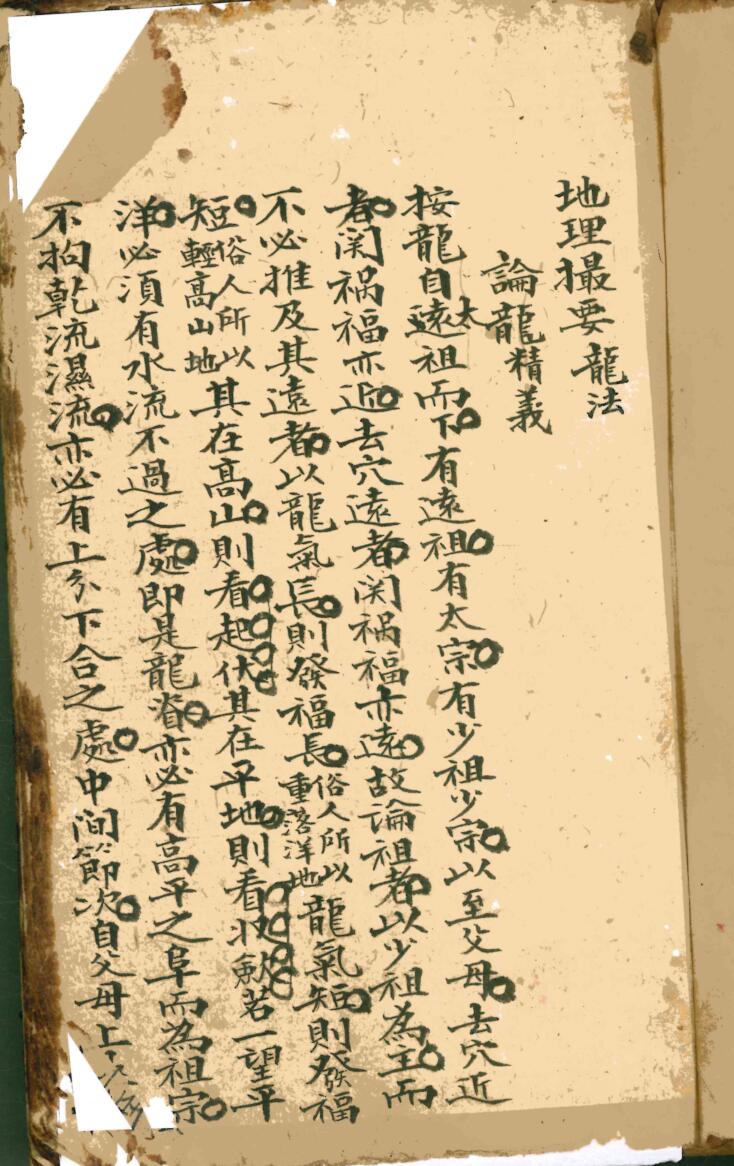 地理撮要 龍法
論龍精義
按龍自遠太祖而下有遠祖有太宗有少祖少宗以至父母去穴近
者関禍福亦近去穴遠者関禍福亦遠故論祖者以少祖為主而
不必推及其遠者以龍氣長則發福長俗人所以重落洋地龍氣短則發福
短俗人所以輕高山地其在高山則看起伏其在平地則看收歛若一望平
洋必須有水流不過之處即是龍脊亦必有高平之阜而為祖宗
不拘乾流濕流亦必有上分下合之處中间節次自父母上